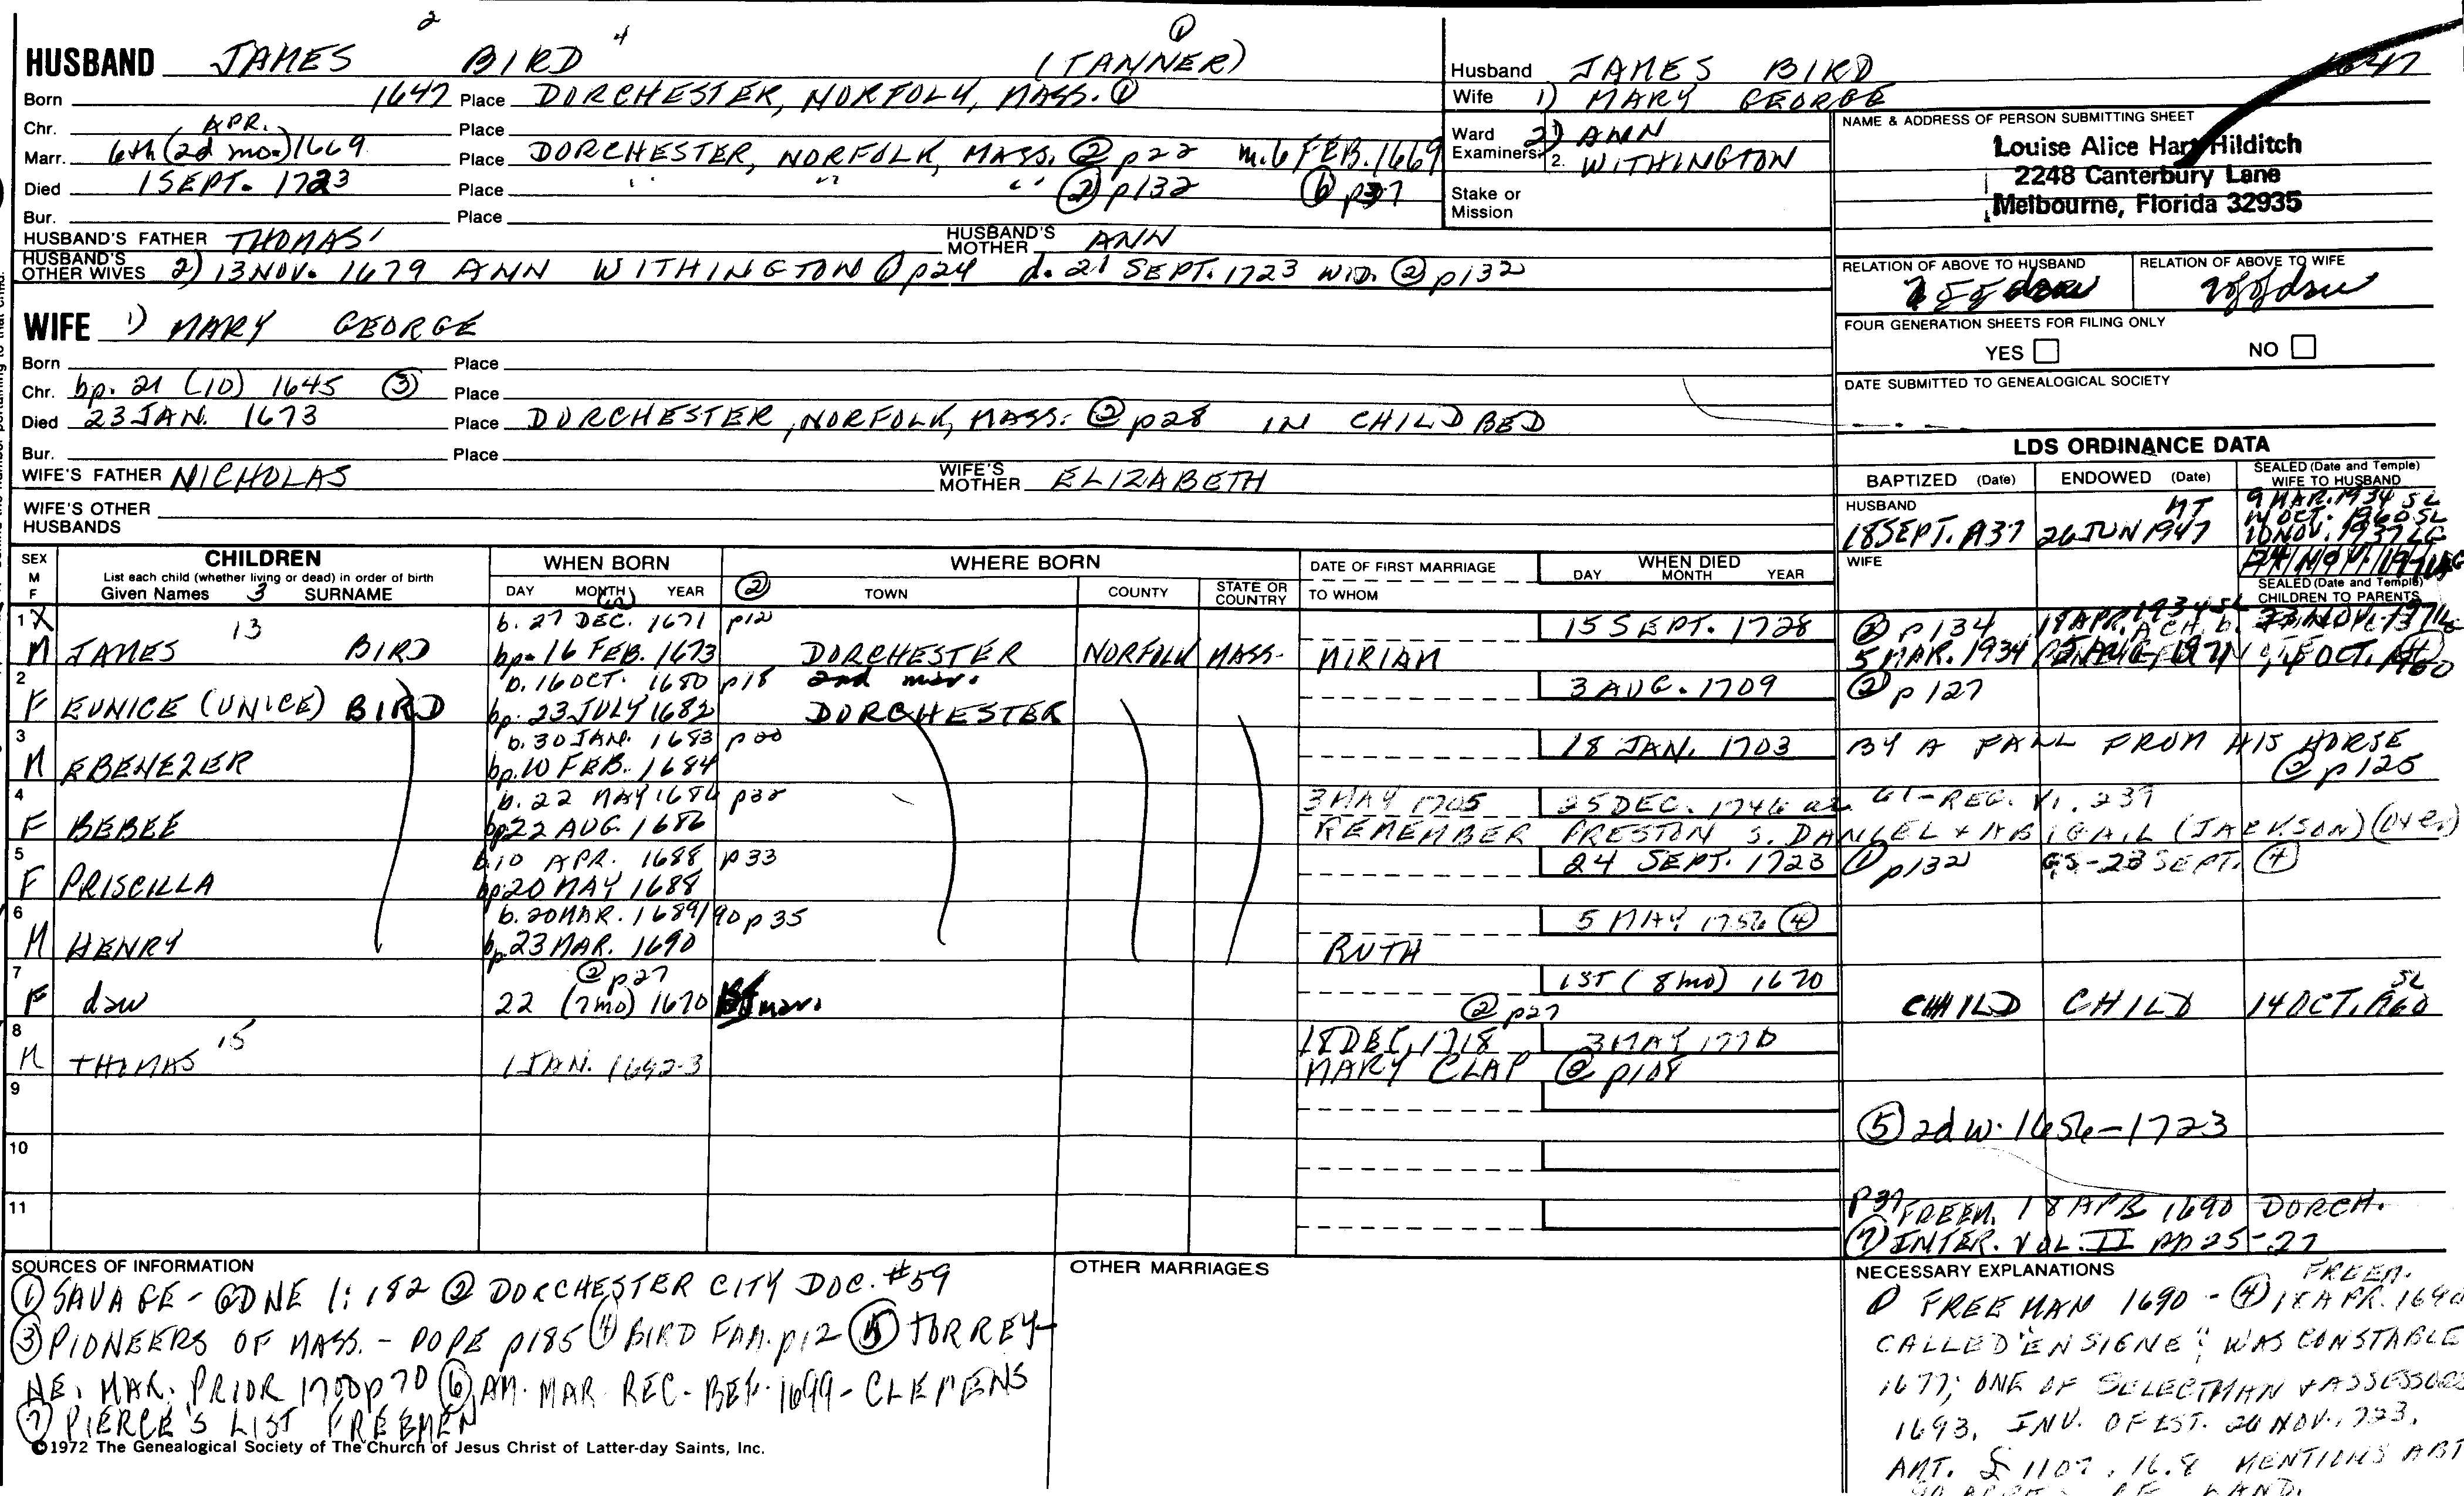 2 4 ①
HUSBAND JAMES BIRD (TANNER)
Born 1647 Place DORCHESTER, NORFOLK, MASS. ①
Chr. Place
APR.
Marr. 6th (2d mo.) 1669 Place DORCHESTER, NORFOLK, MASS. ② p22 m. 6 FEB. 1669
Died 1 SEPT. 1723 Place " " " ② p132 ⑥ p37
Bur. Place
HUSBAND'S FATHER THOMAS' HUSBAND'S MOTHER ANN
HUSBAND'S OTHER WIVES 2) 13 NOV. 1679 ANN WITHINGTON ① p24 d. 21 SEPT. 1723 WID. ② p132
WIFE 1) MARY GEORGE
Born Place
Chr. bp. 21 (10) 1645 ③ Place
Died 23 JAN. 1673 Place DORCHESTER, NORFOLK, MASS. ② p28 IN CHILDBED
Bur. Place
WIFE'S FATHER NICHOLAS WIFE'S MOTHER ELIZABETH
WIFE'S OTHER HUSBANDS
Husband JAMES BIRD 1647
Wife 1) MARY GEORGE
Ward Examiners: 2) ANN
2. WITHINGTON
Stake or Mission
NAME & ADDRESS OF PERSON SUBMITTING SHEET
Louise Alice Hart Hilditch
2248 Canterbury Lane
Melbourne, Florida 32935
RELATION OF ABOVE TO HUSBAND RELATION OF ABOVE TO WIFE
FOUR GENERATION SHEETS FOR FILING ONLY
YES NO
DATE SUBMITTED TO GENEALOGICAL SOCIETY
LDS ORDINANCE DATA
BAPTIZED (Date) ENDOWED (Date) SEALED (Date and Temple) WIFE TO HUSBAND
HUSBAND NT 9 MAR. 1934 SL
14 OCT. 1960 SL
18 SEPT. 1937 26 JUN 1947 10 NOV. 1937 LG
WIFE
SEALED (Date and Temple) CHILDREN TO PARENTS
SEX M F CHILDREN WHEN BORN WHERE BORN DATE OF FIRST MARRIAGE WHEN DIED
List each child (whether living or dead) in order of birth
Given Names 3 SURNAME DAY MONTH YEAR ② TOWN COUNTY STATE OR COUNTRY TO WHOM DAY MONTH YEAR
1 X 13 b. 27 DEC. 1671 p12 15 SEPT. 1728 ② p134
M JAMES BIRD bp. 16 FEB. 1673 DORCHESTER NORFOLK MASS. MIRIAM 5 MAR. 1934 14 OCT. 1960
2 b. 16 OCT. 1680 p18 2nd mar. 3 AUG. 1709 ② p127
F EUNICE (UNICE) BIRD bp. 23 JULY 1682 DORCHESTER
3 b. 30 JAN. 1683 p30 18 JAN. 1703 BY A FALL FROM HIS HORSE
M EBENEZER bp. 10 FEB. 1684 ② p125
4 b. 22 MAY 1686 p32 3 MAY 1705 25 DEC. 1746 GT-REG. VI. 239
F BEBEE bp. 22 AUG. 1686 REMEMBER PRESTON S. DANIEL + ABIGAIL (JACKSON) (over)
5 b. 10 APR. 1688 p33 24 SEPT. 1723 ① p132 GS-23 SEPT. ④
F PRISCILLA bp. 20 MAY 1688
6 b. 20 MAR. 1689/90 p35 5 MAY 1756 ④
M HENRY bp. 23 MAR. 1690 RUTH
7 ② p27 1ST (8 mo) 1670 SL
F daw 22 (7 mo) 1670 1st mar. ② p27 CHILD CHILD 14 OCT. 1960
8 15 18 DEC. 1718 3 MAY 1770
M THOMAS 1 JAN. 1692-3 MARY CLAP ② p108
9
⑤ 2d w. 1656-1723
10
11 p37 FREEM. 18 APR 1690 DORCH.
⑦ INTER. VOL. II pp 25-27
SOURCES OF INFORMATION
① SAVAGE - GDNE 1:182 ② DORCHESTER CITY DOC. #59
③ PIONEERS OF MASS. - POPE p185 ④ BIRD FAM. p12 ⑤ TORREY
NE. MAR. PRIOR 1700 p70 ⑥ AM. MAR. REC. - BEF. 1699 - CLEMENS
⑦ PIERCE'S LIST FREEMEN
©1972 The Genealogical Society of The Church of Jesus Christ of Latter-day Saints, Inc.
OTHER MARRIAGES
NECESSARY EXPLANATIONS FREEM.
① FREEMAN 1690 - ④ 18 APR. 1690
CALLED "ENSIGNE"; WAS CONSTABLE
1677; ONE OF SELECTMAN + ASSESSORS
1693. INV. OF EST. 20 NOV. 1723.
AMT. £1107.16.8 MENTIONS ABT
LAND.